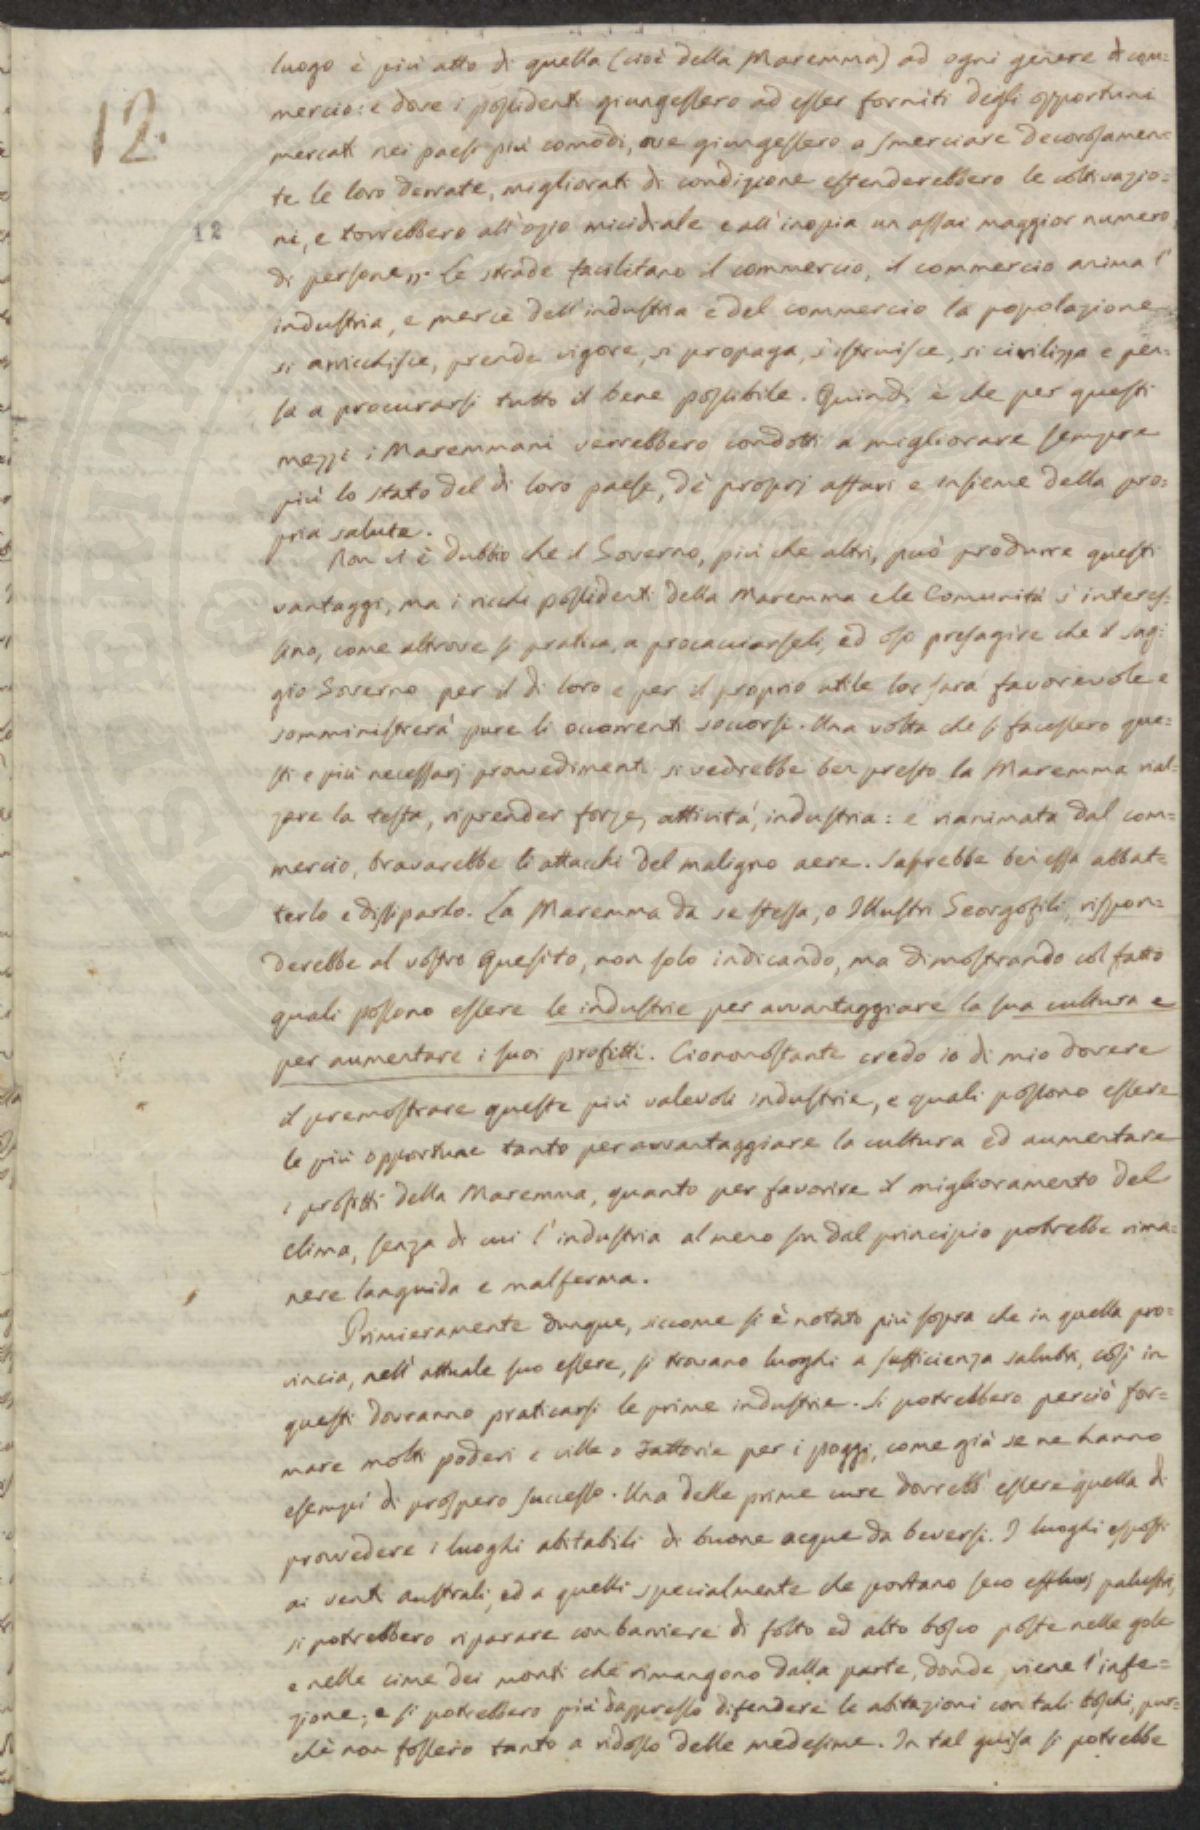 12.
12
luogo è più atto di quella (cioè della Maremma) ad ogni genere di com=
mercio: e dove i possidenti giungessero ad esser forniti degli opportuni
mercati nei paesi più comodi, ove giungessero a smerciare decorosamen=
te le loro derrate, migliorati di condizione estenderebbero le coltivazio=
ni, e torrebbero all'ozio micidiale e all'inopia un assai maggior numero
di persone„. Le strade facilitano il commercio, il commercio anima l'
industria, e mercè dell'industria e del commercio la popolazione
si arricchisce, prende vigore, si propaga, s'istruisce, si civilizza e pen=
sa a procurarsi tutto il bene possibile. Quindi è che per questi
mezzi i Maremmani verrebbero condotti a migliorare sempre
più lo stato del di loro paese, de' proprj affari e insieme della pro=
pria salute.
Non vi è dubbio che il Governo, più che altri, può produrre questi
vantaggi, ma i ricchi possidenti della Maremma e le Comunità s'interes=
sino, come altrove si pratica, a procacciarseli, ed oso presagire che il sag=
gio Governo per il di loro e per il proprio utile lor sarà favorevole e
somministrerà pure li occorrenti soccorsi. Una volta che si facessero que=
sti e più necessarj provvedimenti si vedrebbe ben presto la Maremma rial=
zare la testa, riprender forze, attività, industria: e rianimata dal com=
mercio, bravarebbe li attacchi del maligno aere. Saprebbe ben essa abbat=
terlo e dissiparlo. La Maremma da se stessa, o Illustri Georgofili, rispon=
derebbe al vostro Quesito, non solo indicando, ma dimostrando col fatto
quali possono essere le industrie per avvantaggiare la sua cultura e
per aumentare i suoi profitti. Ciononostante credo io di mio dovere
il premostrare queste più valevoli industrie, e quali possono essere
le più opportune tanto per avvantaggiare la cultura ed aumentare
i profitti della Maremma, quanto per favorire il miglioramento del
clima, senza di cui l'industria almeno sin dal principio potrebbe rima=
nere languida e malferma.
Primieramente dunque, siccome si è notato più sopra che in quella pro=
vincia, nell'attuale suo essere, si trovano luoghi a sufficienza salubri, così in
questi dovranno praticarsi le prime industrie. Si potrebbero perciò for=
mare molti poderi e ville o Fattorie per i poggi, come già se ne hanno
esempi di prospero successo. Una delle prime cure dovrebb'essere quella di
provvedere i luoghi abitabili di buone acque da beversi. I luoghi esposti
ai venti australi, ed a quelli specialmente che portano seco effluvj palustri,
si potrebbero riparare con barriere di folto ed alto bosco poste nelle gole
e nelle cime dei monti che rimangono dalla parte, donde viene l'infe=
zione; e si potrebbero più dappresso difendere le abitazioni con tali boschi, pur=
chè non fossero tanto a ridosso delle medesime. In tal guisa si potrebbe